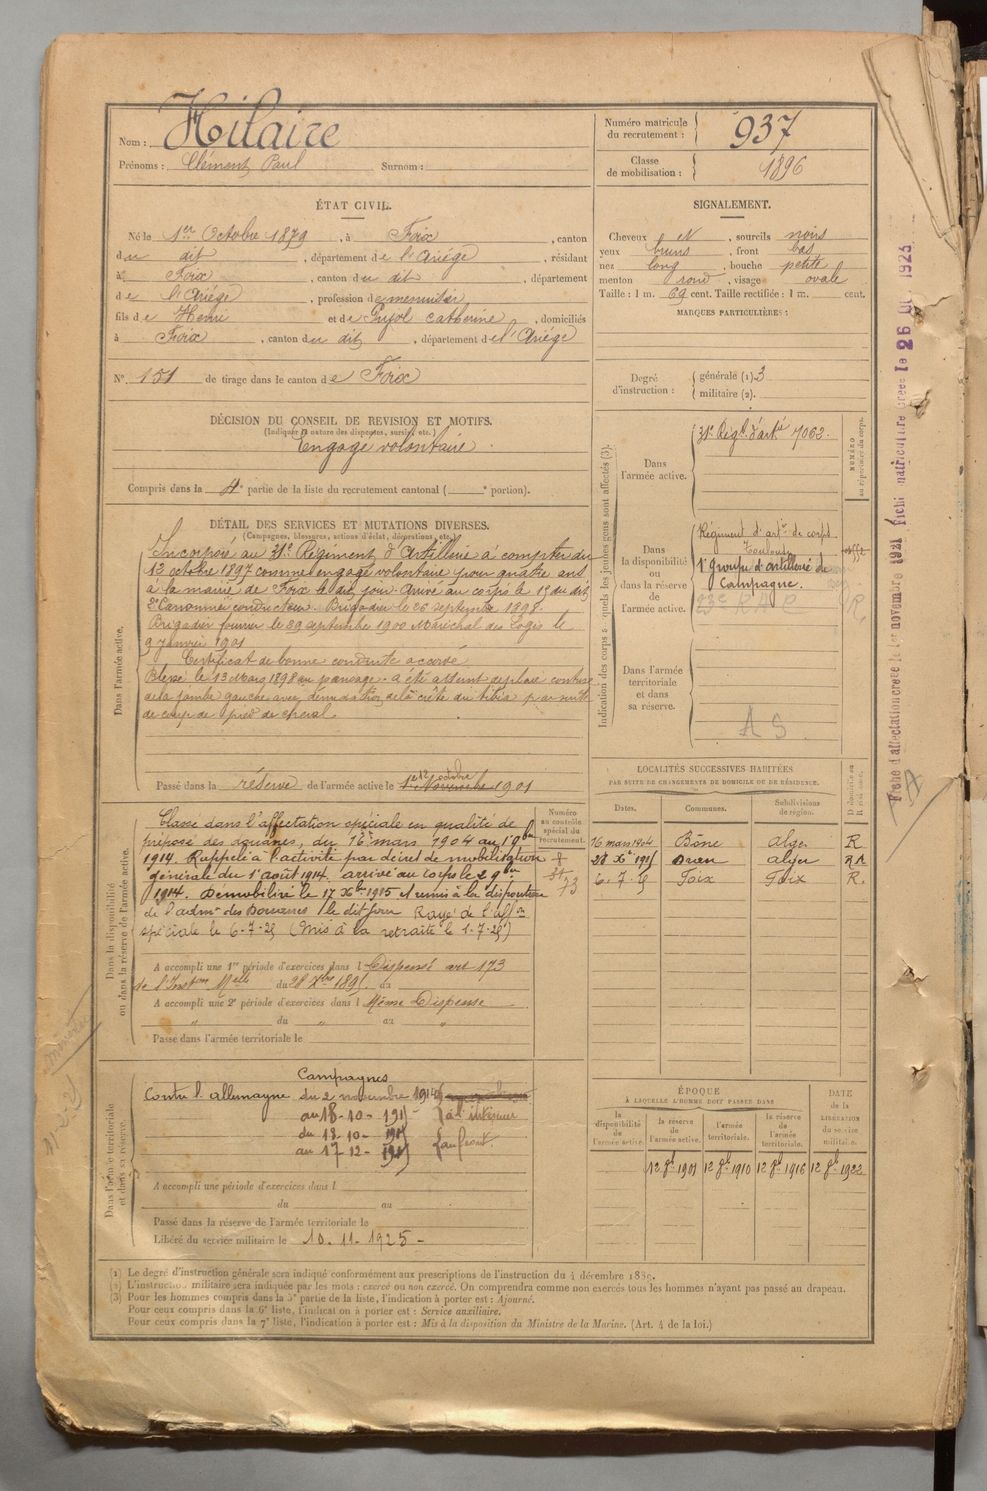 Nom : Hilaire
Prénoms : Clément Paul Surnom :
Numéro matricule du recrutement : 937
Classe de mobilisation : 1896
ÉTAT CIVIL.
Né le 1er Octobre 1879, à Foix, canton
du dit, département de l'Ariège, résidant
à Foix, canton du dit, département
de l'Ariège, profession de menuisier
fils de Henri et de Pujol Catherine, domiciliés
à Foix, canton du dit, département de l'Ariège
N° 151 de tirage dans le canton de Foix
SIGNALEMENT.
Cheveux N, sourcils noirs
yeux bruns, front bas
nez long, bouche petite
menton rond, visage ovale
Taille : 1 m. 69 cent. Taille rectifiée : 1 m. cent.
MARQUES PARTICULIÈRES :
Degré d'instruction : générale (1) 3
militaire (2).
DÉCISION DU CONSEIL DE REVISION ET MOTIFS.
(Indiquer la nature des dispenses, sursis, etc.)
Engagé volontaire
Compris dans la 4e partie de la liste du recrutement cantonal ( e portion).
DÉTAIL DES SERVICES ET MUTATIONS DIVERSES.
(Campagnes, blessures, actions d'éclat, décorations, etc.)
Dans l'armée active.
Incorporé au 31e Régiment d'Artillerie à compter du
12 octobre 1897 comme engagé volontaire pour quatre ans
à la mairie de Foix le dit jour Arrivé au corps le 15 du dit
2e Canonnier conducteur Brigadier le 26 septembre 1898.
Brigadier fourrier le 29 septembre 1900 Maréchal des Logis le
9 janvier 1901
Certificat de bonne conduite accordé
Blessé le 13 Mars 1898 au pansage - a été atteint de plaie contuse
de la jambe gauche avec dénudation de la crête du tibia par suite
de coup de pied de cheval
Passé dans la réserve de l'armée active le 12 octobre 1er Novembre 1901
Indication des corps auxquels les jeunes gens sont affectés (3).
NUMÉRO au répertoire du corps.
Dans l'armée active.
31e Régt d'artie 7062.
Dans la disponibilité ou dans la réserve de l'armée active.
Régiment d'artie de corps.
Toulouse
1er Groupe d'artillerie de
Campagne.
23e R A C R
Dans l'armée territoriale et dans sa réserve.
A S
Dans la disponibilité ou dans la réserve de l'armée active.
Numéro au contrôle spécial du recrutement.
Classé dans l'affectation spéciale en qualité de
préposé des douanes, du 16 mars 1904 au 1er 9bre
1914. Rappelé à l'activité par décret de mobilisation
générale du 1er août 1914. arrivé au corps le 2 9bre
1914. Démobilisé le 17 Xbre 1915 et remis à la disposition
de l'admon des Douanes le dit jour Rayé de l'affon
spéciale le 6-7-25 (Mis à la retraite le 1-7-25)
73
A accompli une 1re période d'exercices dans l Dispensé art 173
de l'Inston Melle du 28 Xbre 1895 au
A accompli une 2e période d'exercices dans l Même Dispense
du " au "
Passé dans l'armée territoriale le
LOCALITÉS SUCCESSIVES HABITÉES
PAR SUITE DE CHANGEMENTS DE DOMICILE OU DE RÉSIDENCE.
Dates. Communes. Subdivisions de région. D domicile ou R résidence.
16 mars 1904 Bône Alger R
28 Xbre 1915 Oran alger RA
6.7.25 Foix Foix R.
Dans l'armée territoriale et dans sa réserve.
Campagnes
Contre l'Allemagne du 2 novembre 1914
au 18-10-1915 à l'intérieur
du 18-10-1915
au 17-12-1915 au front.
A accompli une période d'exercices dans l
du au
Passé dans la réserve de l'armée territoriale le
Libéré du service militaire le 10-11-1925 -
ÉPOQUE
À LAQUELLE L'HOMME DOIT PASSER DANS
la disponibilité de l'armée active.
la réserve de l'armée active.
l'armée territoriale.
la réserve de l'armée territoriale.
DATE de la LIBÉRATION du service militaire.
12 8bre 1901 12 8bre 1910 12 8bre 1916 12 8bre 1922
(1) Le degré d'instruction générale sera indiqué conformément aux prescriptions de l'instruction du 4 décembre 1889.
(2) L'instruction militaire sera indiquée par les mots : exercé ou non exercé. On comprendra comme non exercés tous les hommes n'ayant pas passé au drapeau.
(3) Pour les hommes compris dans la 5e partie de la liste, l'indication à porter est : Ajourné.
Pour ceux compris dans la 6e liste, l'indication à porter est : Service auxiliaire.
Pour ceux compris dans la 7e liste, l'indication à porter est : Mis à la disposition du Ministre de la Marine. (Art. 4 de la loi.)
Fiche d'affectation créée le 1er novembre 1921 Fiche matriculaire créée le 26 1923